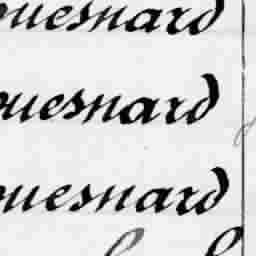 ouesnard
ouesnard
ouesnard